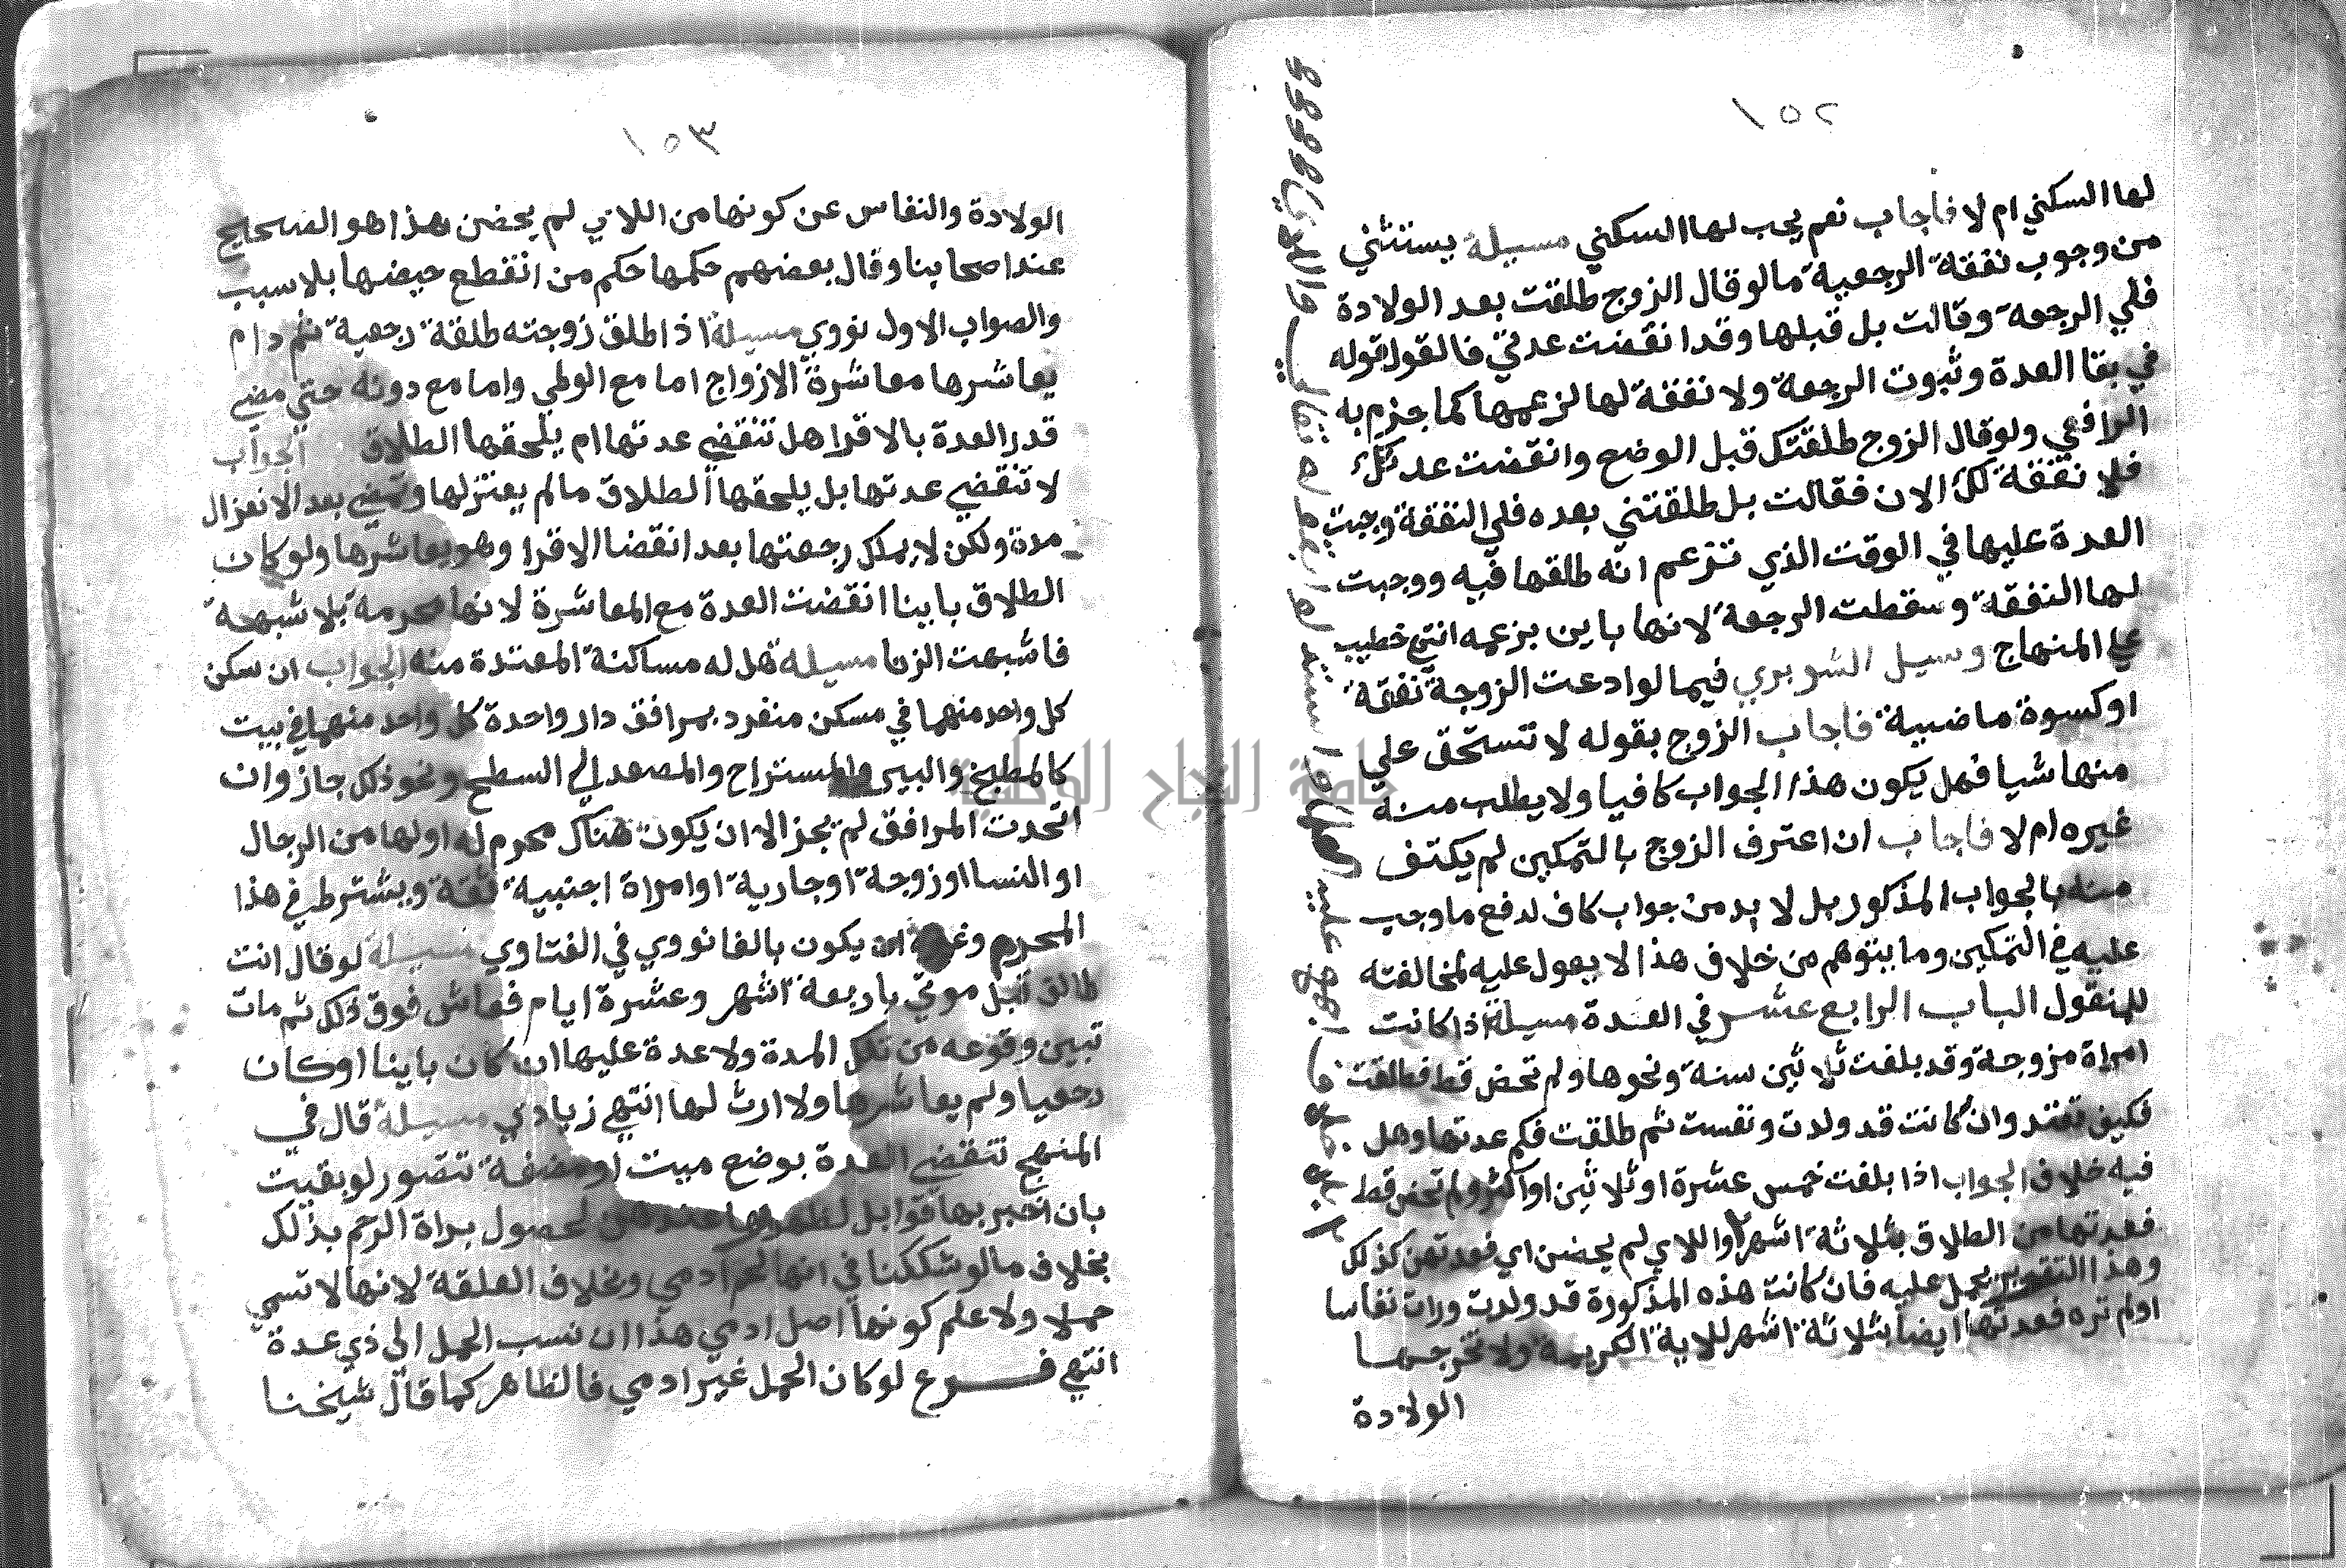 ١٥٢
لها السكني ام لا فاجاب نعم يجب لها السكني مسيلة يستثني
من وجوب نفقة الرجعية مالو قال الزوج طلقت بعد الولادة
فلي الرجعة وقالت بل قبلها وقد انقضت عدتي فالقول قوله
في بقا العدة وثبوت الرجعة ولا نفقة لها لزعمها كما جزم به
الرافعي ولو قال الزوج طلقتك قبل الوضع وانقضت عدتك
فلا نفقة لك الان فقالت بل طلقتني بعده فلي النفقة وجبت
العدة عليها في الوقت الذي تزعم انه طلقها فيه ووجبت
لها النفقة وسقطت الرجعة لانها باين بزعمه انتهي خطيب
علي المنهاج وسيل الشوبري فيما لو ادعت الزوجة نفقة
او كسوة ماضية فاجاب الزوج بقوله لا تستحق علي
منها شيا فهل يكون هذا الجواب كافيا ولا يطلب منه
غيره ام لا فاجاب ان اعترف الزوج بالتمكين لم يكتف
منه بالجواب المذكور بل لا بد من جواب كاف لدفع ما وجب
عليه في التمكين وما يتوهم من خلاف هذا لا يعول عليه لمخالفته
للمنقول الباب الرابع عشر في العدة مسيلة اذا كانت
امراة مزوجة وقد بلغت ثلاثين سنة ونحوها ولم تحض قط فطلقت
فكيف تعتد وان كانت قد ولدت ونفست ثم طلقت فكم عدتها وهل
فيه خلاف الجواب اذا بلغت خمس عشرة او ثلاثين او اكثر ولم تحض قط
فعدتها من الطلاق بثلاثة اشهر واللاي لم يحضن اي فعدتهن كذلك
وهذا التقرير يحمل عليه فان كانت هذه المذكورة قد ولدت ورات نفاسا
اولم تره فعدتها ايضا بثلاثة اشهر للاية الكريمة ولا تخرجها
الولادة
والله تعالي
١٥٣
الولادة والنفاس عن كونها من اللاتي لم يحضن هذا هو الصحيح
عند اصحابنا وقال بعضهم حكمها حكم من انقطع حيضها بلا سبب
والصواب الاول نووي مسيلة اذا طلق زوجته طلقة رجعية ثم دام
يعاشرها معاشرة الازواج اما مع الوطي واما مع دونه حتي مضي
قدر العدة بالاقرا هل تنقضي عدتها ام يلحقها الطلاق الجواب
لا تنقضي عدتها بل يلحقها الطلاق مالم يعتزلها وتمضي بعد الانعزال
مدة ولكن لا يملك رجعتها بعد انقضا الاقرا وهو يعاشرها ولو كان
الطلاق باينا انقضت العدة مع المعاشرة لانها محرمة بلا شبهة
فاشبهت الزنا مسيلة هل له مساكنة المعتدة منه الجواب ان سكن
كل واحد منهما في مسكن منفرد بمرافق دار واحدة كل واحد منهما في بيت
كالمطبخ والبير والمستراح والمصعد الي السطح ونحو ذلك جاز وان
اتحدت المرافق لم يجز الا ان يكون هناك محرم له اولها من الرجال
او النسا او زوجة او جارية او امراة اجنبية ثقة ويشترط في هذا
المحرم وغيره ان يكون بالغا نووي في الفتاوي مسيلة لو قال انت
طالق قبل موتي باربعة اشهر وعشرة ايام فعاش فوق ذلك ثم مات
تبين وقوعه من تلك المدة ولا عدة عليها ان كان باينا او كان
رجعيا ولم يعاشرها ولا ارث لها انتهي زيادي مسيلة قال في
المنهج تنقضي العدة بوضع ميت او مضغة تتصور لو بقيت
بان اخبر بها قوابل لظهورها عندهن لحصول براة الرحم بذلك
بخلاف مالو شككنا في انها لحم ادمي وبخلاف العلقة لانها لا تسمي
حملا ولا علم كونها اصل ادمي هذا ان نسب الحمل الي ذي عدة
انتهي فرع لو كان الحمل غير ادمي فالظاهر كما قال شيخنا
جامعة النجاح الوطنية